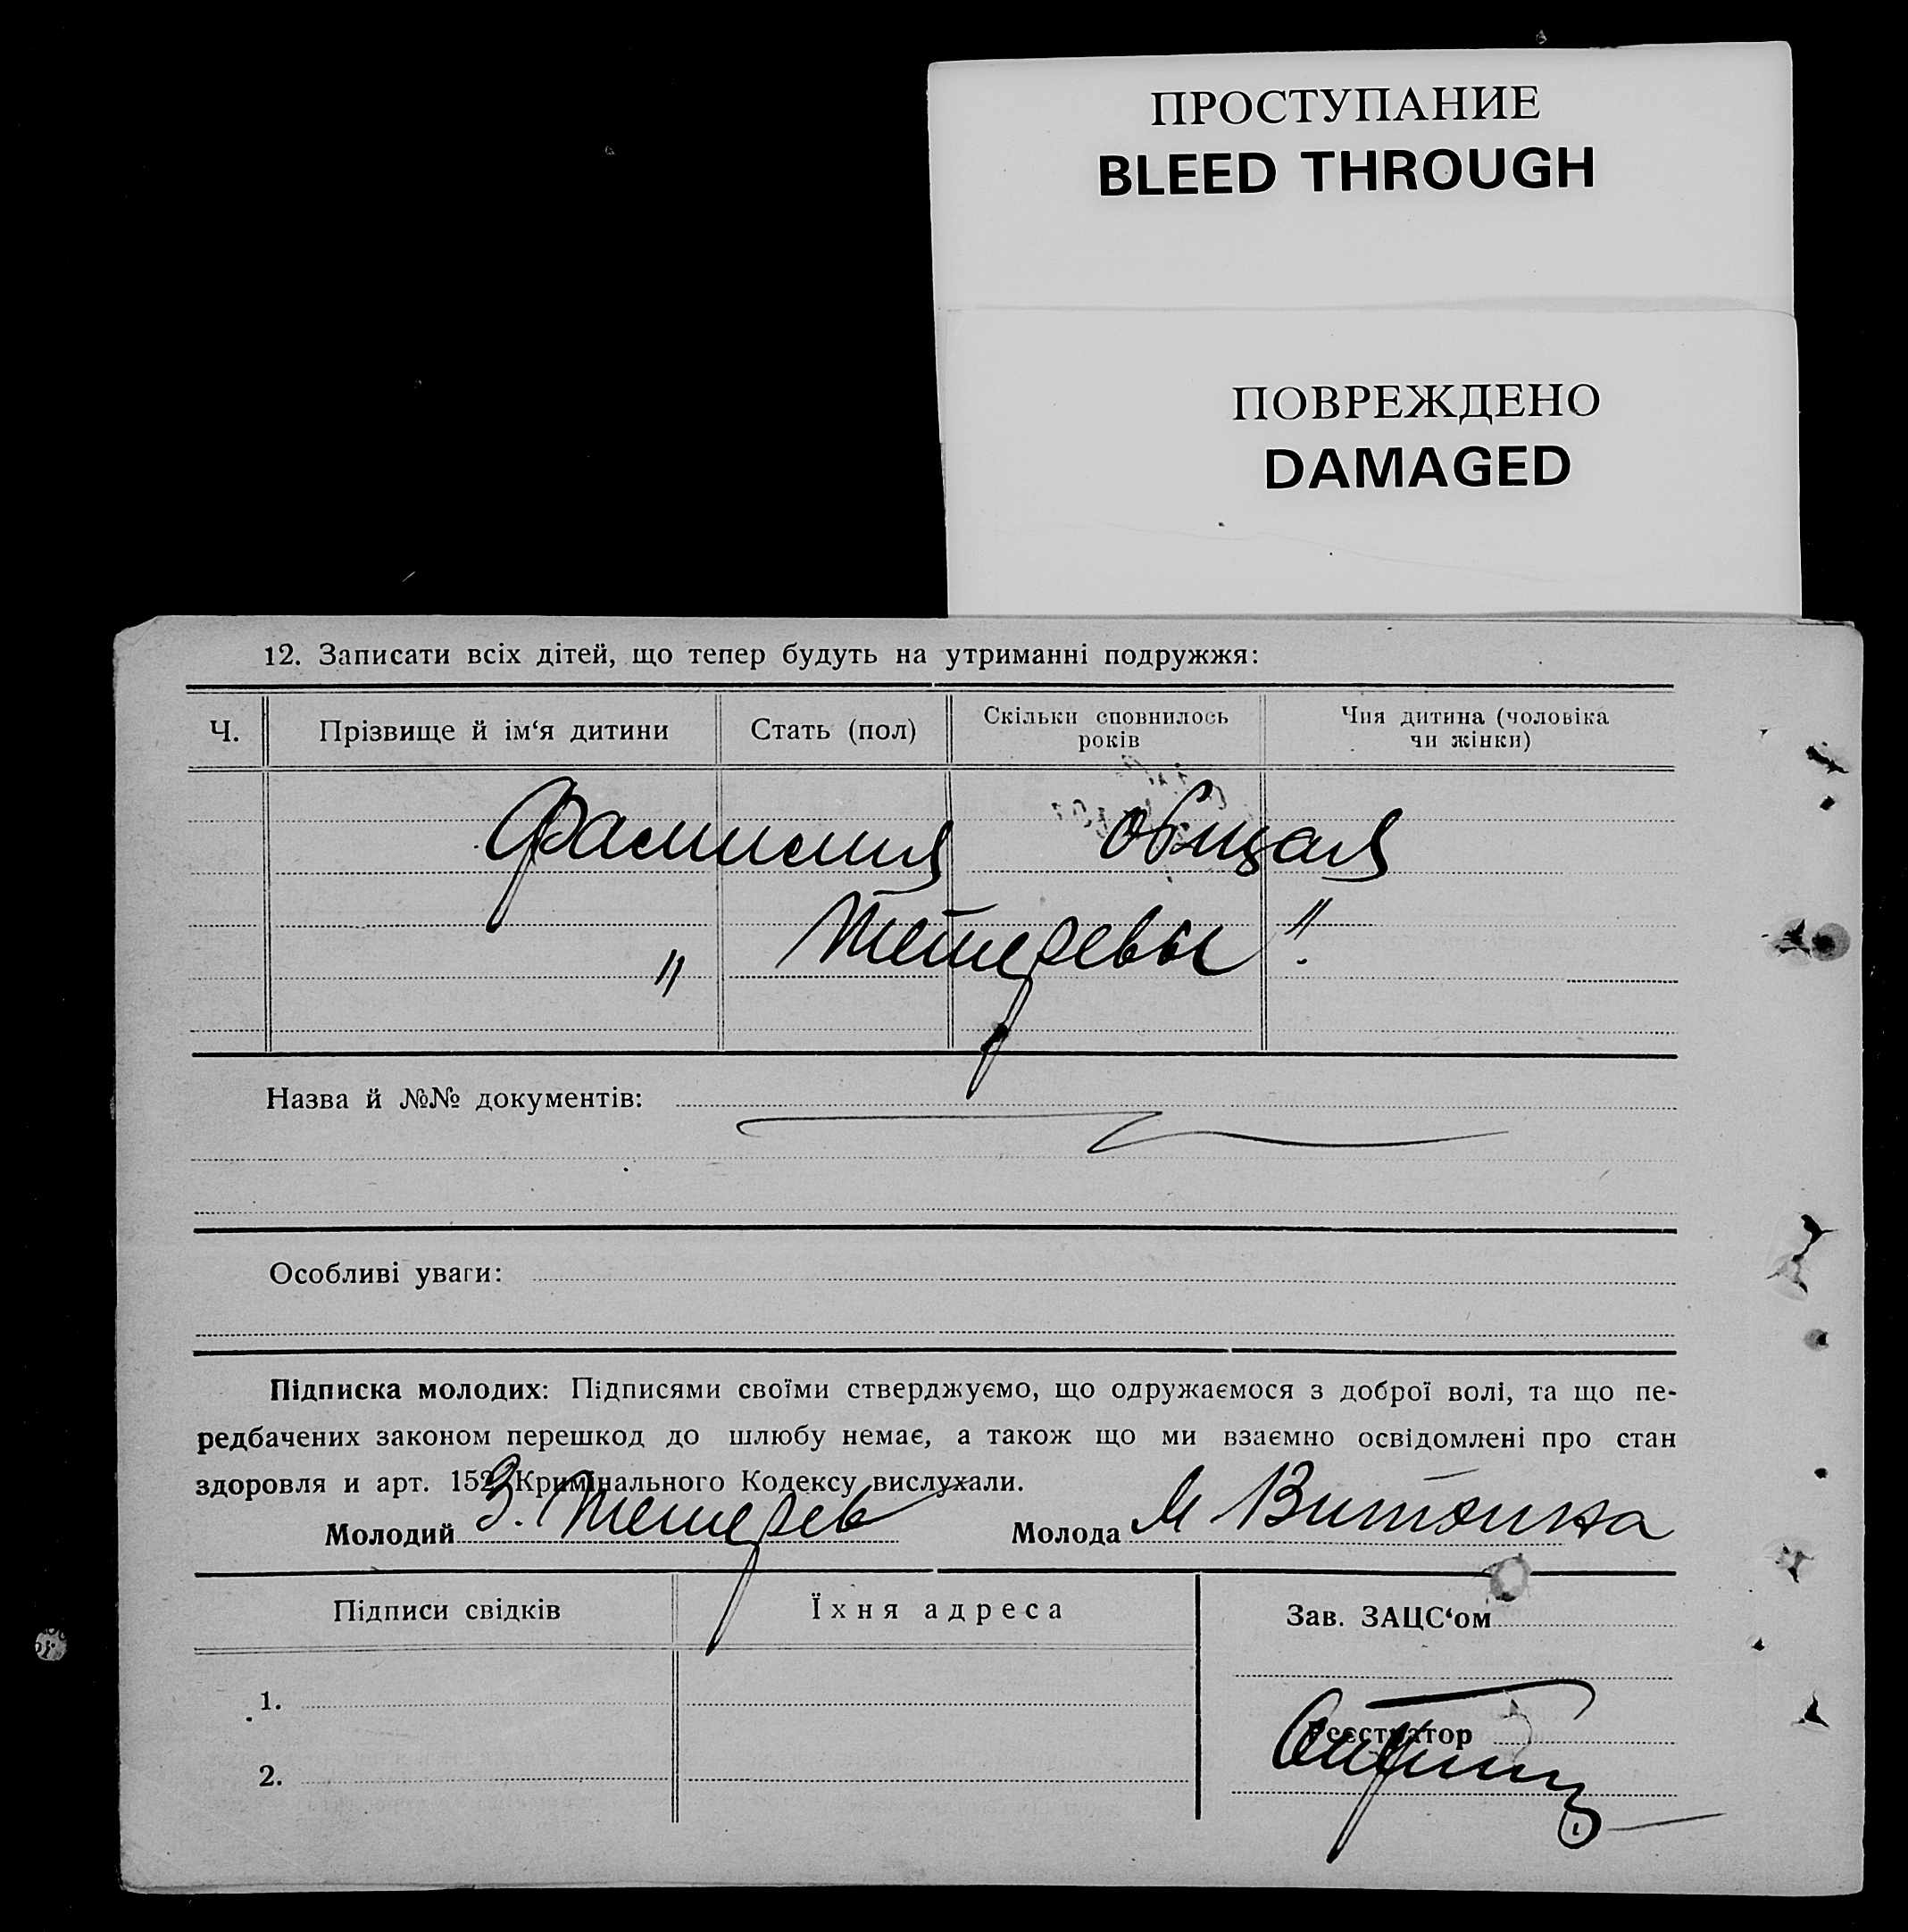 ПРОСТУПАНИЕ
BLEED THROUGH
ПОВРЕЖДЕНО
DAMAGED
12. Записати всіх дітей, що тепер будуть на утриманні подружжя:
Ч. Прізвище й ім‘я дитини Стать (пол) Скільки сповнилось років Чия дитина (чоловіка чи жінки)
Фамилия общая
„ Тетеревы ".
Назва й №№ документів:
Особливі уваги:
Підписка молодих: Підписями своїми стверджуємо, що одружаємося з доброї волі, та що пе-
редбачених законом перешкод до шлюбу немає, а також що ми взаємно освідомлені про стан
здоровля и арт. 152 Кримінального Кодексу вислухали.
Молодий З. Тетерев Молода М
Підписи свідків Їхня адреса Зав. ЗАЦС‘ом
1.
Реєстратор
2.